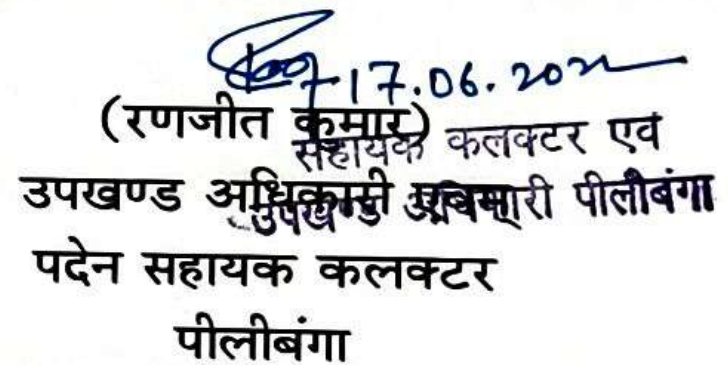 17.06.202
(रणजीत कुमार)
सहायक कलक्टर एवं
उपखण्ड अधिकारी एवम्
उपखण्ड अधिकारी पीलीबंगा
पदेन सहायक कलक्टर
पीलीबंगा